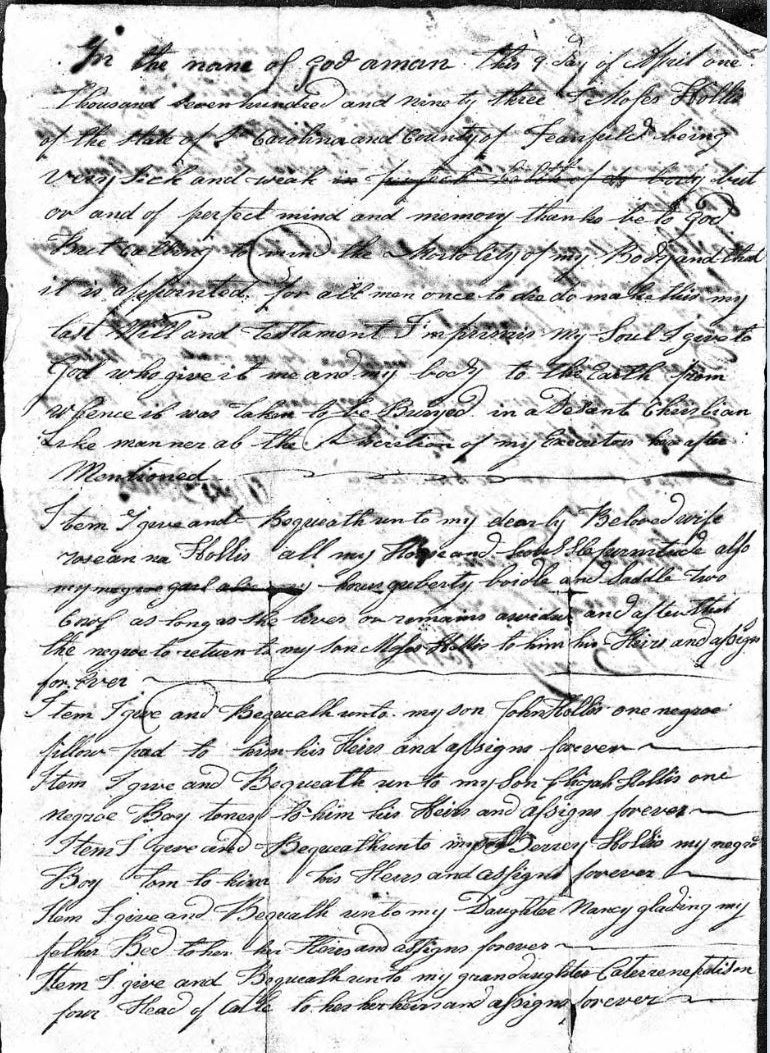 In the name of god aman this 9 Day of April one
Thousand Seven hundred and ninety three I Moses Hollis
of the State of So Carolina and County of Fearfield being
Very Sick and weak in perfect of body but
ov and of perfect mind and memory thanks be to god
But calling to mind the Mortolety of my Body and that
it is appointed for all men once to die do make this my
last Will and testament Imprimis My Soul I give to
God who give it me and my body to the Earth from
whence it was taken to be Buryed in a Desant Christian
Like manner at the Discretion of my Executors hereafter
Mentioned
Item I give and Bequeath unto my dearly Beloved wife
roseanna Hollis all my House and hous also
my negroe garl my hors bridle and Saddle two
Cows as long as she lives or remains a widow and after that
the negroe to return to my son Moses Hollis to him his Heirs and assigns
for Ever
Item I give and Bequeath unto my son John Hollis one negroe
fellow to him his Heirs and assigns forever
Item I give and Bequeath unto my Son Elijah Hollis one
negroe Boy toney to him his Heirs and assigns forever
Item I give and Bequeath unto my son Berrey Hollis my negroe
Boy Tom to him his Heirs and assigns forever
Item I give and Bequeath unto my Daughter Nancy glading my
fether Bed to her her Heirs and assigns forever
Item I give and Bequeath unto my grandaughter Caterrene
four Head of Catle to her her heirs and assigns forever